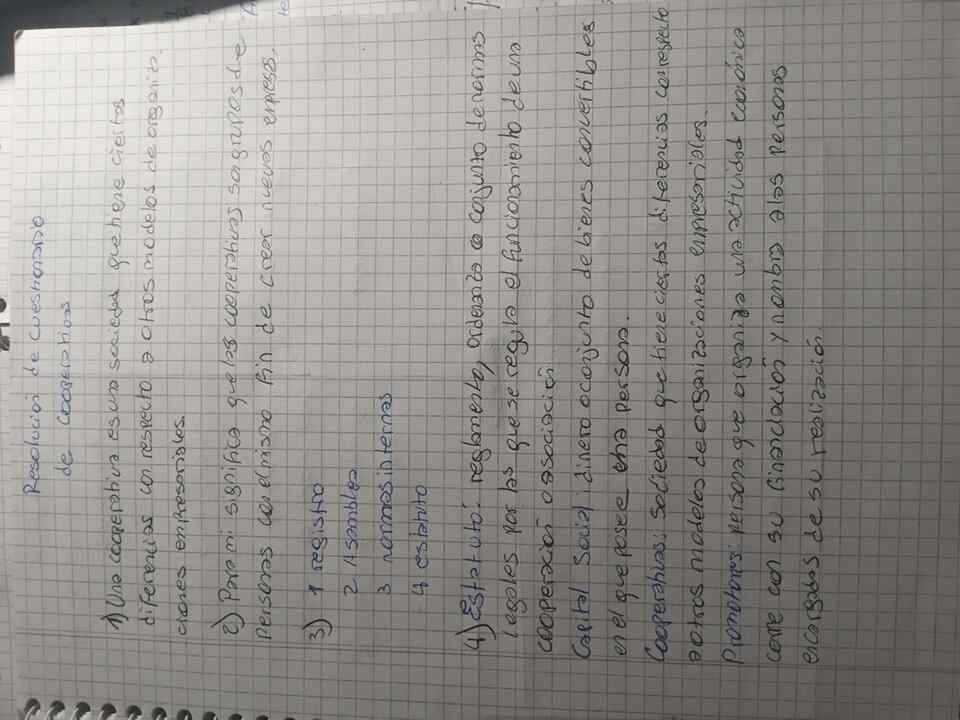 Resolución de cuestionario
de cooperativas
1) Una cooperativa es una sociedad que tiene ciertas
diferencias con respecto a otros modelos de organiza
ciones empresariales.
2) Para mi significa que las cooperativas son grupos de
personas con el mismo fin de crear nuevas empresas.
3)
1 registro
2 Asamblea
3 normas internas
4 estatuto
4) Estatuto: reglamento, ordenanza o conjunto de normas
legales por las que se regula el funcionamiento de una
cooperación o asociación.
Capital Social: dinero o conjunto de bienes convertibles
en el que posee una persona.
Cooperativas: Sociedad que tiene ciertas diferencias con respecto
a otros modelos de organizaciones empresariales.
Promotores: persona que organiza una actividad económica
corre con su financiación y nombra a las personas
encargadas de su realización.